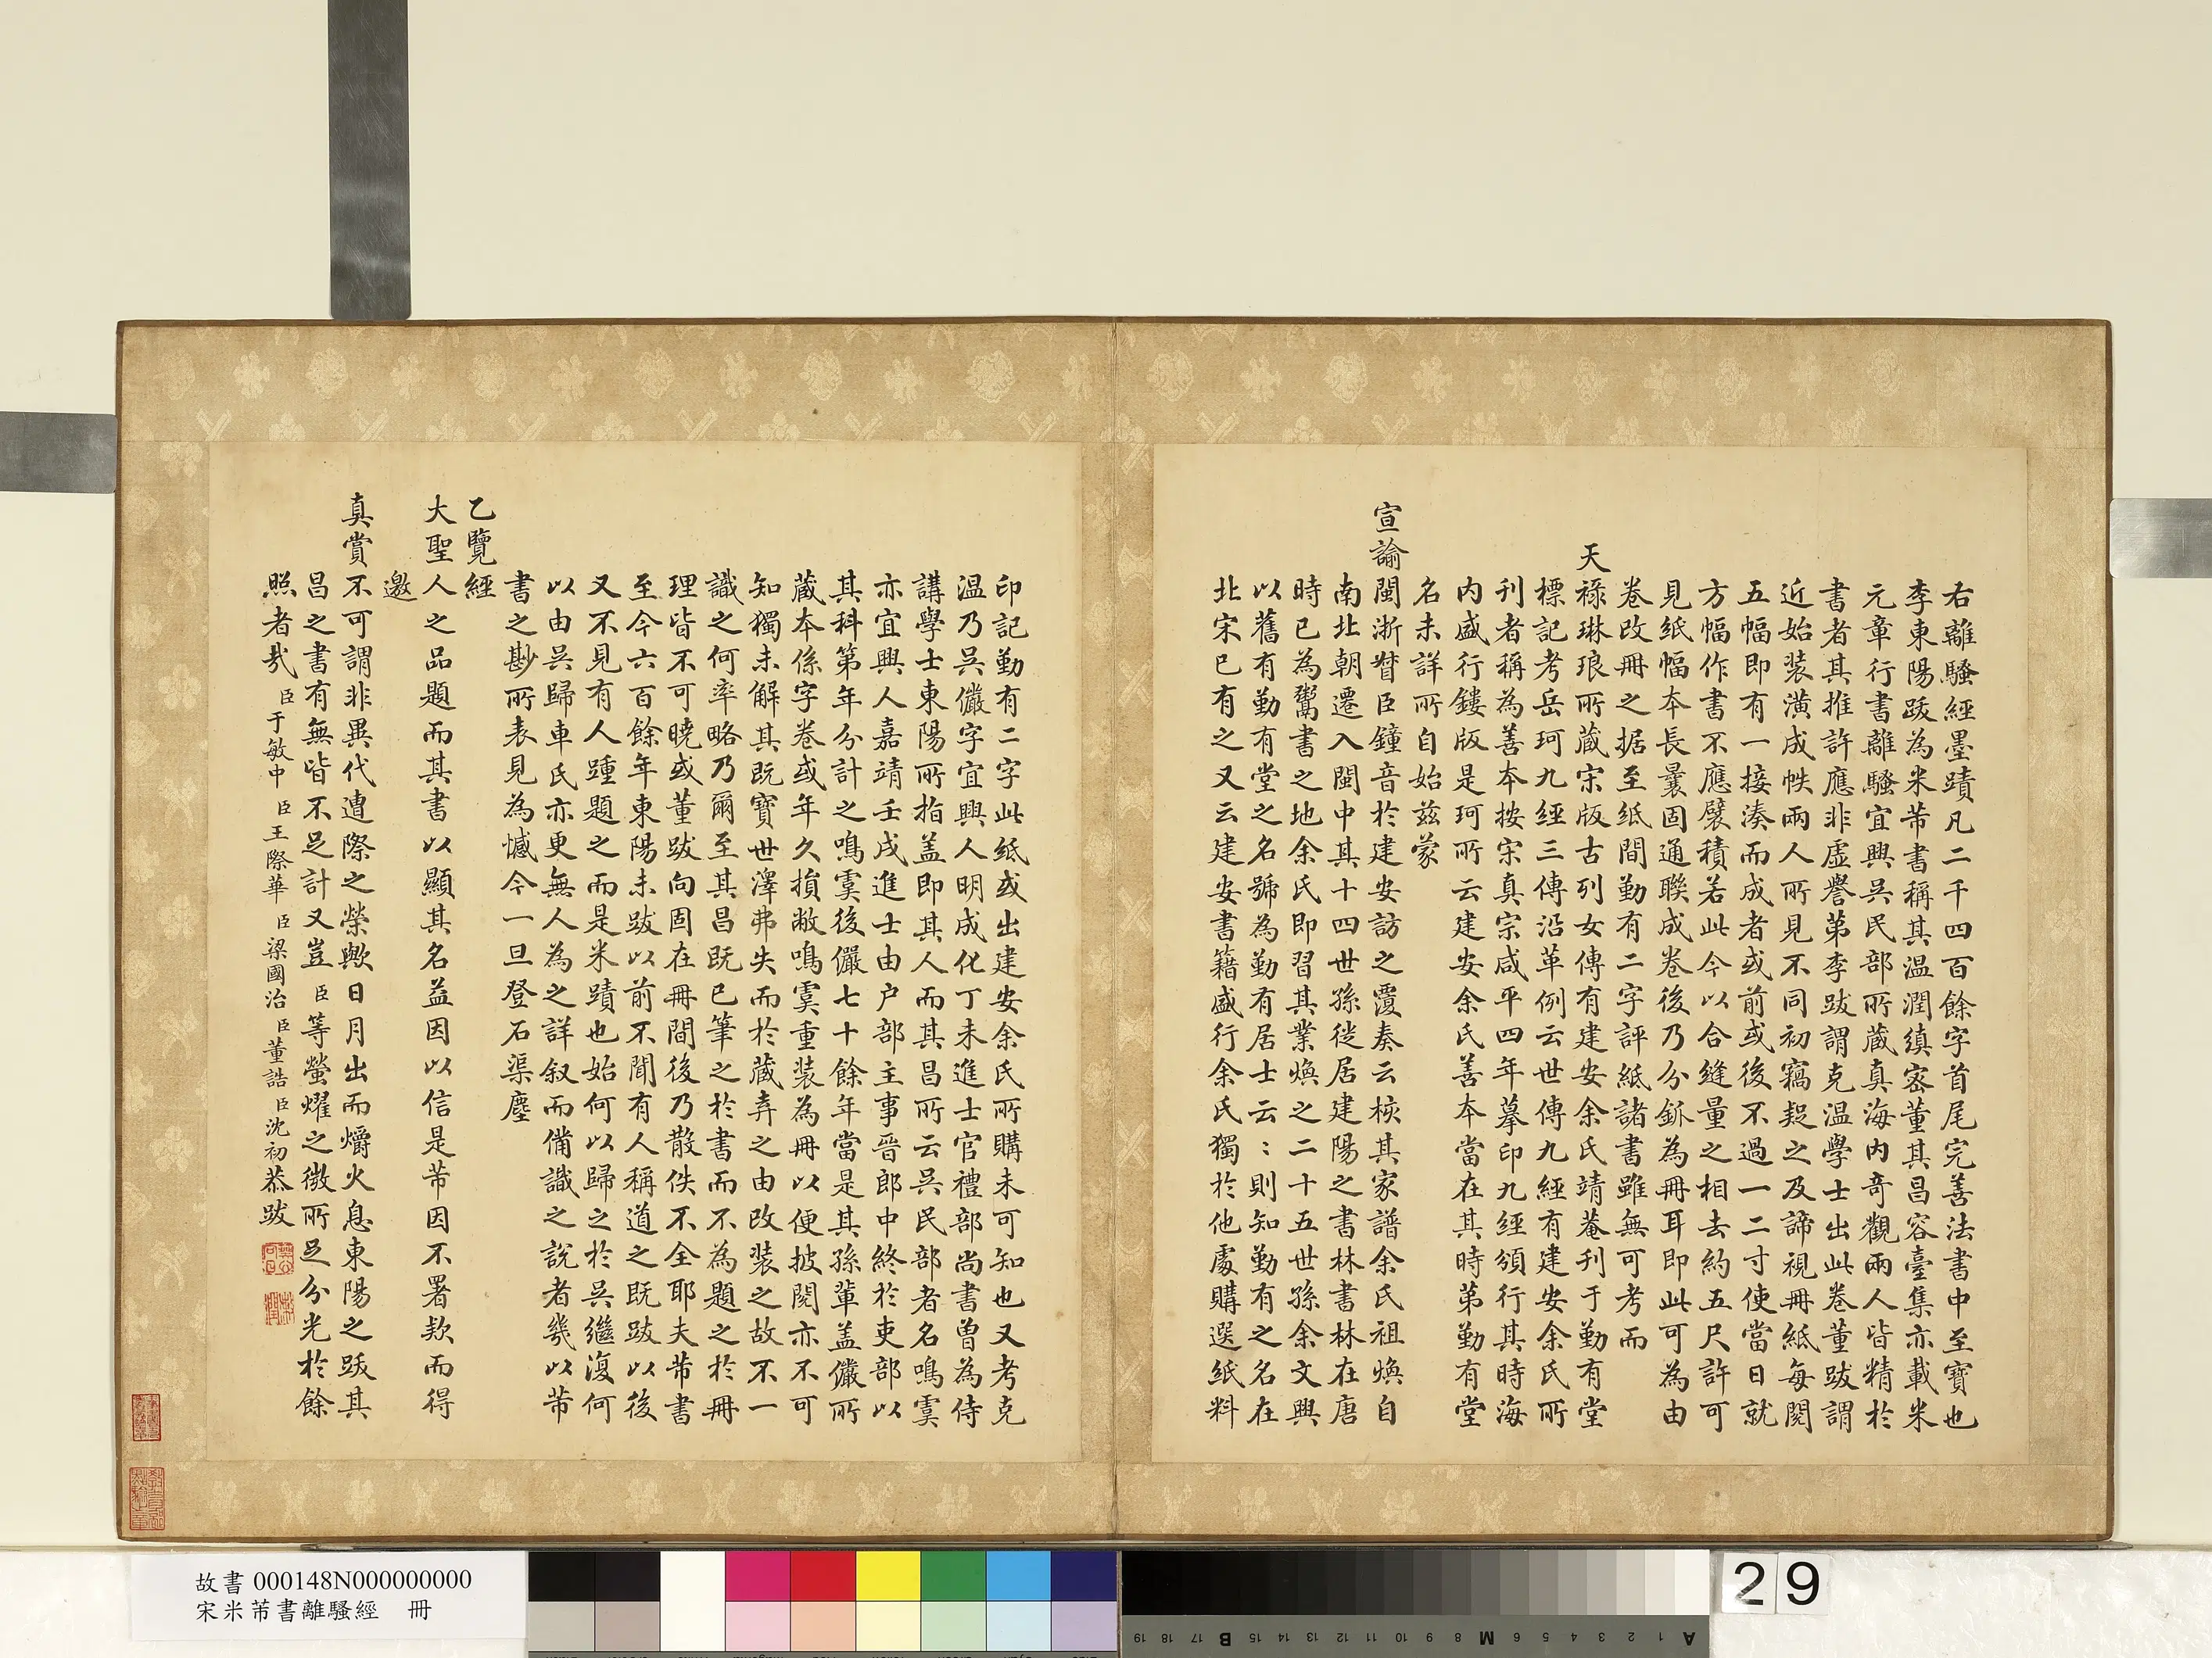 右離騷經墨蹟凡二千四百餘字首尾完善法書中至寶也
李東陽跋為米芾書稱其温潤縝密董其昌容臺集亦載米
元章行書離騷宜興吳民部所藏真海內奇觀兩人皆精於
書者其推許應非虛譽第李跋謂克温學士出此卷董跋謂
近始裝潢成帙兩人所見不同初竊疑之及諦視冊紙每閱
五幅即有一接湊而成者或前或後不過一二寸使當日就
方幅作書不應襞積若此今以合縫量之相去約五尺許可
見紙幅本長曩固通聯成卷後乃分鈲為冊耳即此可為由
卷改冊之据至紙間勤有二字評紙諸書雖無可考而
天祿琳琅所藏宋版古列女傳有建安余氏靖菴刊于勤有堂
標記考岳珂九經三傳沿革例云世傳九經有建安余氏所
刊者稱為善本按宋真宗咸平四年摹印九經頒行其時海
內盛行鏤版是珂所云建安余氏善本當在其時第勤有堂
名未詳所自始茲蒙
宣諭閩浙督臣鐘音於建安訪之覆奏云核其家譜余氏祖煥自
南北朝遷入閩中其十四世孫徙居建陽之書林書林在唐
時已為鬻書之地余氏即習其業煥之二十五世孫余文興
以舊有勤有堂之名號為勤有居士云：則知勤有之名在
北宋已有之又云建安書籍盛行余氏獨於他處購選紙料
印記勤有二字此紙或出建安余氏所購未可知也又考克
温乃吳儼字宜興人明成化丁未進士官禮部尚書曾為侍
講學士東陽所指盖即其人而其昌所云吳民部者名鳴虞
亦宜興人嘉靖壬戌進士由户部主事晉郎中終於吏部以
其科第年分計之鳴虞後儼七十餘年當是其孫輩盖儼所
藏本係字卷或年久損敝鳴虞重裝為冊以便披閱亦不可
知獨未解其既寶世澤弗失而於藏弆之由改裝之故不一
識之何率略乃爾至其昌既已筆之於書而不為題之於冊
理皆不可曉或董跋向固在冊間後乃散佚不全耶夫芾書
至今六百餘年東陽未跋以前不聞有人稱道之既跋以後
又不見有人踵題之而是米蹟也始何以歸之於吳繼復何
以由吳歸車氏亦更無人為之詳叙而備識之說者幾以芾
書之尠所表見為憾今一旦登石渠塵
乙覽經
大聖人之品題而其書以顯其名益因以信是芾因不署款而得
邀
真賞不可謂非異代遭際之榮歟日月出而爝火息東陽之跋其
昌之書有無皆不足計又豈臣等螢燿之微所足分光於餘
照者哉 臣于敏中 臣王際華 臣梁國治 臣董誥 臣沈初恭跋
故書 000148N000000000
宋米芾書離騷經 冊
29